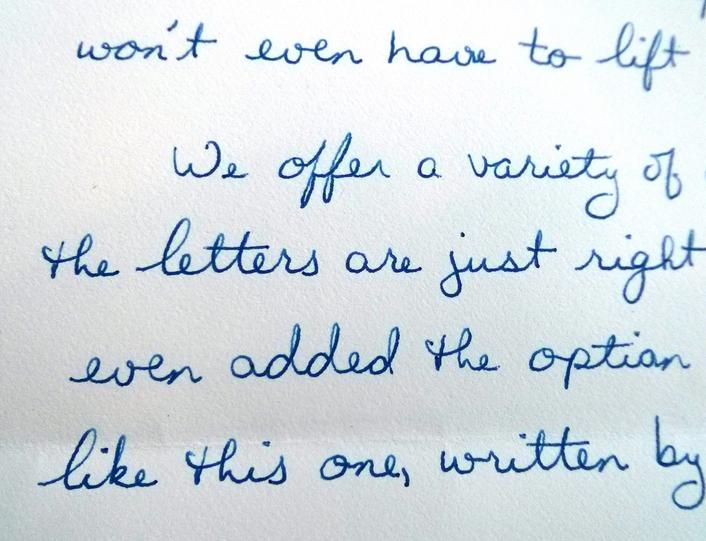 won't even have to lift
We offer a variety of
the letters are just right
even added the option
like this one, written by